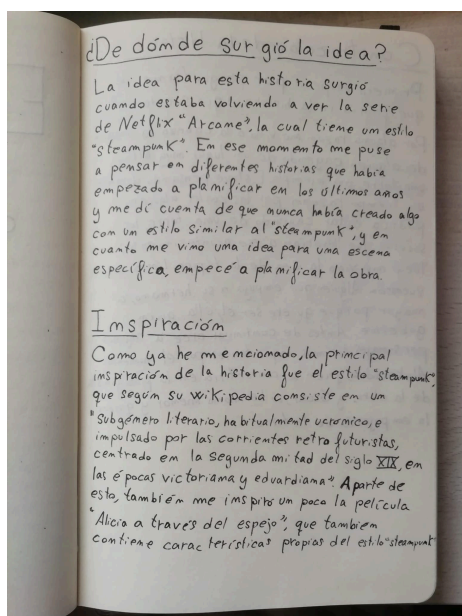 ¿De dónde surgió la idea?
La idea para esta historia surgió
cuando estaba volviendo a ver la serie
de Netflix "Arcane", la cual tiene un estilo
"steampunk". En ese momento me puse
a pensar en diferentes historias que había
empezado a planificar en los últimos anos
y me dí cuenta de que nunca había creado algo
con un estilo similar al "steampunk", y en
cuanto me vino una idea para una escena
específica, empecé a planificar la obra.
Inspiración
Como ya he mencionado, la principal
inspiración de la historia fue el estilo "steampunk",
que según su wikipedia consiste en un
"Subgénero literario, habitualmente ucronico, e
impulsado por las corrientes retrofuturistas,
centrado en la segunda mitad del siglo XIX, en
las épocas victoriana y eduardiana". Aparte de
esto, también me inspiró un poco la película
"Alicia a través del espejo", que tambien
contiene características propias del estilo "steampunk"